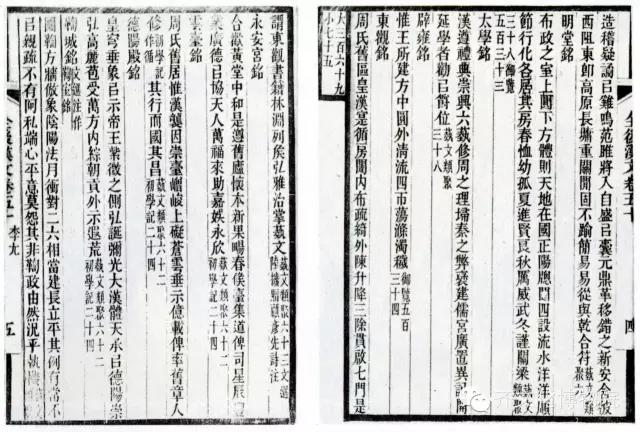 造稽疑謫㠯雞鳴范雎將入自盛㠯囊元鼎革移錯之新安舍彼
西阻東卽高原長墉重關閉固不踰簡易易從與乾合符藝文類聚六
明堂銘
布政之室上圓下方體則天地在國正陽牕闥四設流水洋洋順
節行化各居其房春恤幼孤夏進賢良秋厲威武冬謹關梁藝文類聚
三十八御覽
五百三十三
太學銘
漢遵禮典崇興六蓺修周之理埽秦之弊褒建儒宮廣置異記開
延學者勸㠯爵位藝文類聚三十八
辟雍銘
惟王所建方中圓外清流四帀蕩滌濁穢御覽五百三十四
東觀銘
周氏舊區皇漢寔循房闥內布疏綺外陳升降三除貫啟七門是
大三百六十九
小七十五
全後漢文卷五十
四
謂東觀書籍林淵列矦弘雅治掌蓺文藝文類聚六十三文選
永安宮銘
合歡黃堂中和是遵舊廬懷本新果暢春矦臺集道俾司星辰豐
業廣德㠯協天人萬福來助嘉娛永欣藝文類聚六十二初學記二十四
雲臺銘
周氏舊居惟漢襲因崇臺嶕嶢上礙蒼雲垂示億載俾率舊章人
修其行而國其昌藝文類聚六十二初學記二十四
德陽殿銘
皇穹垂象㠯示帝王紫微之側弘誕彌光大漢體天承㠯德陽崇
弘高麗苞受萬方內綜朝貢外示遐荒藝文類聚六十二初學記二十四
鞠城銘
圓鞠方牆倣象陰陽法月衝對二六相當建長立平其例有常不
㠯親疏不有阿私端心平意莫怨其非鞠政由然況乎執機
全後漢文卷五十
李尤
五